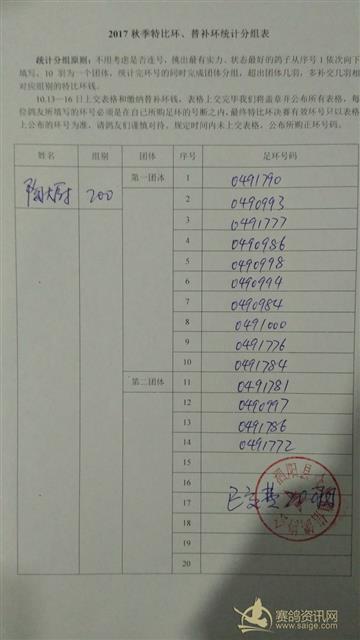 2017 秋季特比环、替补环统计分组表
统计分组原则：不用考虑是否连号，挑出最有实力、状态最好的鸽子从序号 1 依次向下
填写、10 羽为一个团体，统计完环号的同时完成团体分组，超出团体几羽，多补交几羽相
对应组别的特比环钱。
10.13—16 日上交表格和缴纳替补环钱，表格上交完毕我们将盖章并公布所有表格，每
位鸽友所填写的环号必须是在自己所购足环的号断之内，最终特比环决赛有效环号只以表格
上公布的环号为准，请鸽友们谨慎对待，规定时间内未上交表格，公布所购正环号码。
姓名 组别 团体 序号 足环号码
200 第一团体 1 0491790
2 0490993
3 0491777
4 0490986
5 0490998
6 0490994
7 0490984
8 0491000
9 0491776
10 0491784
第二团体 11 0491781
12 0490997
13 0491786
14 0491772
15
16
17 已交费
18
19
20
泗阳县
赛鸽资讯网
www.saige.com